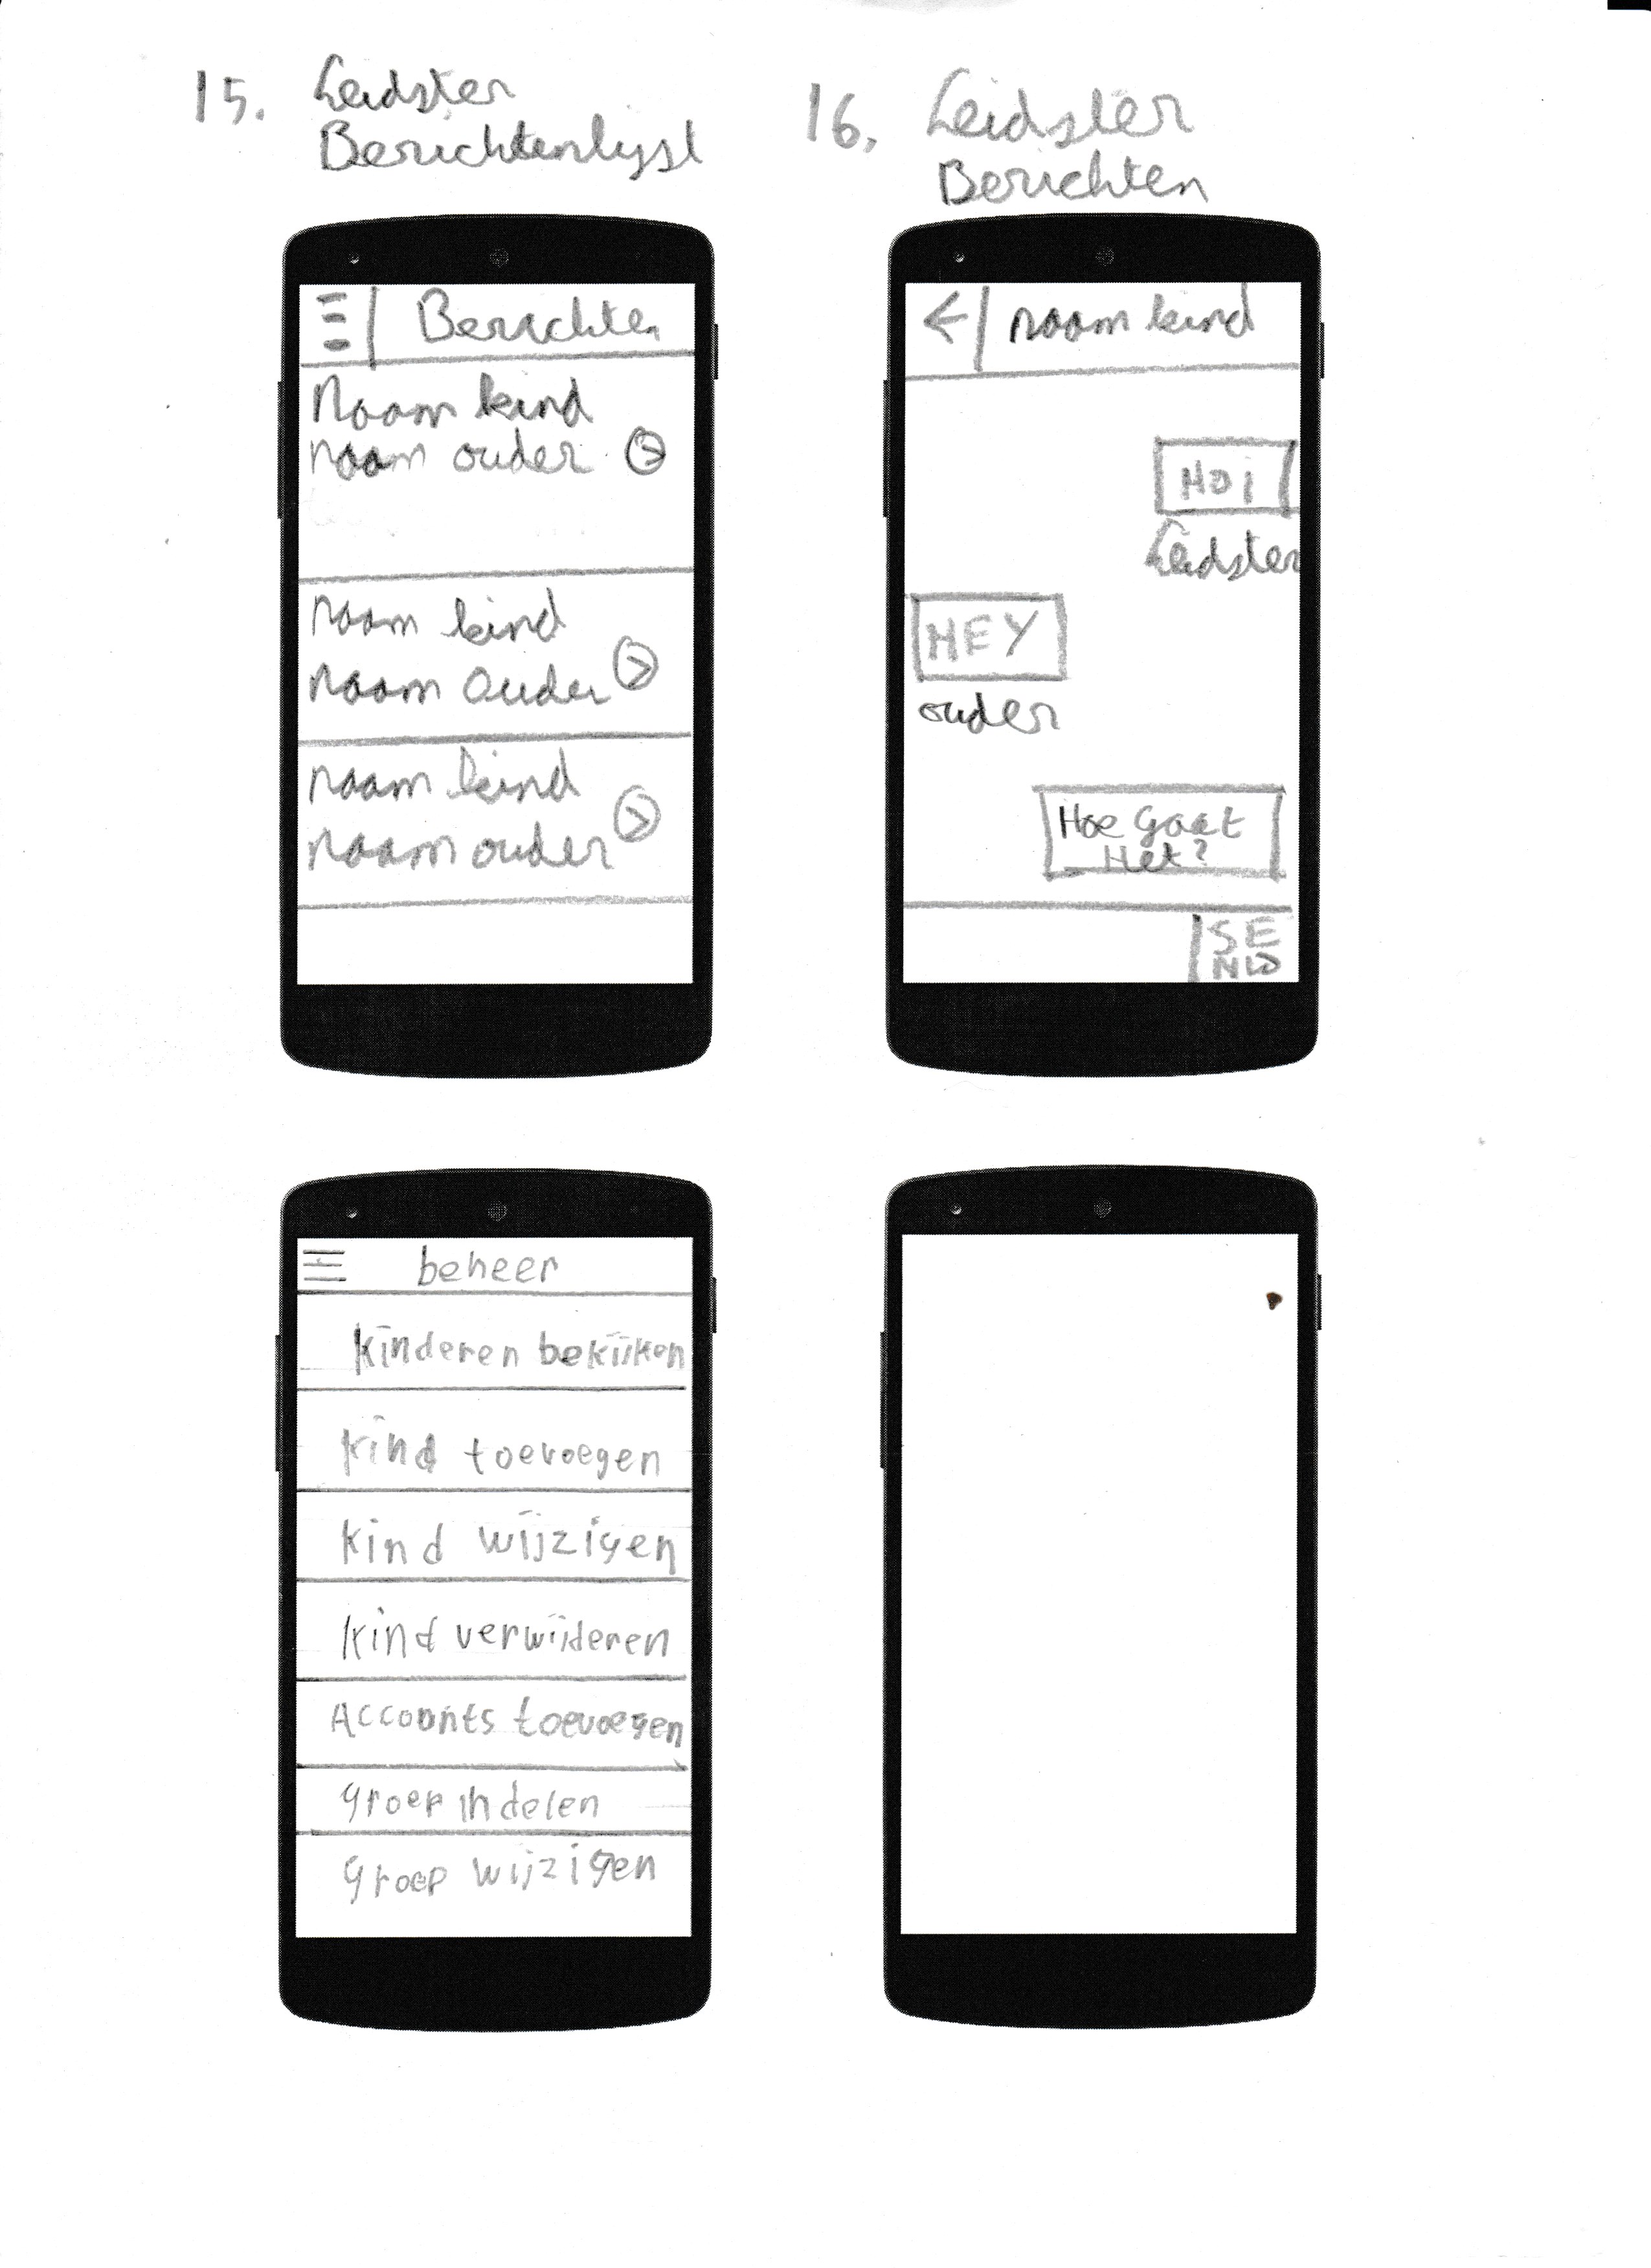 15. Leidster
Berichtenlijst
Berichten
Naam kind
naam ouder
naam kind
naam ouder
naam kind
naam ouder
16. Leidster
Berichten
naam kind
HOi
Leidster
HEY
ouder
Hoe Gaat
Het?
SE
ND
beheer
kinderen bekijken
kind toevoegen
kind wijzigen
kind verwijderen
Accounts toevoegen
groep indelen
groep wijzigen